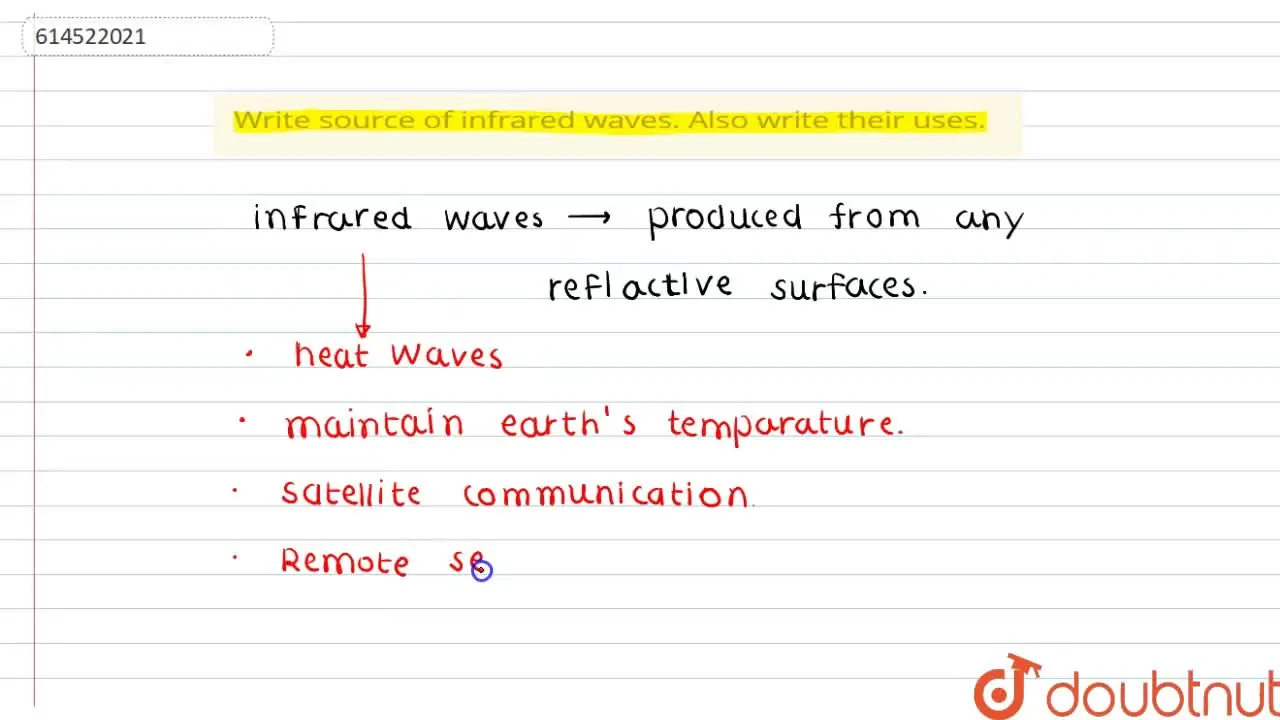 614522021
Write source of infrared waves. Also write their uses.
infrared waves → produced from any
reflactive surfaces.
· heat waves
· maintain earth's temparature.
· satellite communication.
· Remote se
doubtnut